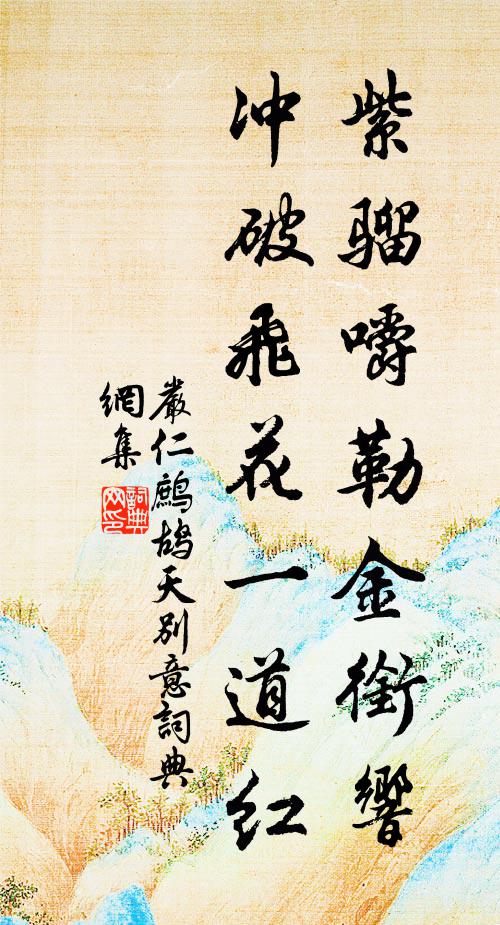 紫骝嚼勒金銜響
冲破飛花一道红
嚴仁鷓鴣天别意詞典
網集
詞典
网印